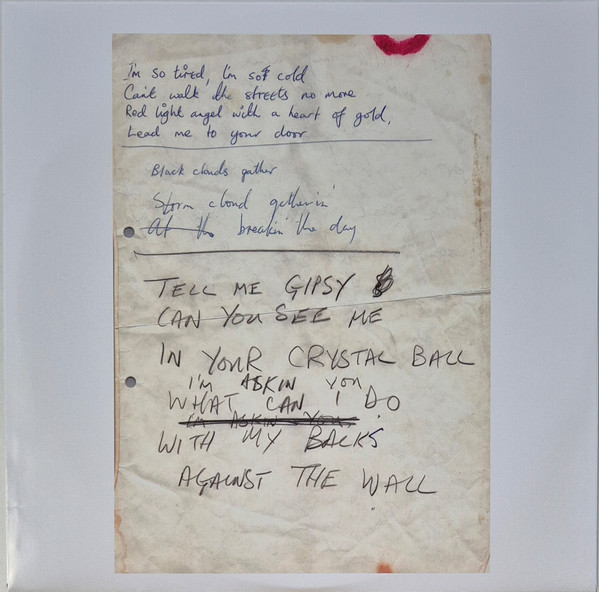 I'm so tired, I'm so cold
Can't walk the streets no more
Red light angel with a heart of gold,
Lead me to your door
Black clouds gather
Storm cloud gatherin'
At the breakin' the day
TELL ME GIPSY
CAN YOU SEE ME
IN YOUR CRYSTAL BALL
I'M ASKIN YOU
WHAT CAN I DO
I'M ASKIN YOU
WITH MY BACKS
AGAINST THE WALL